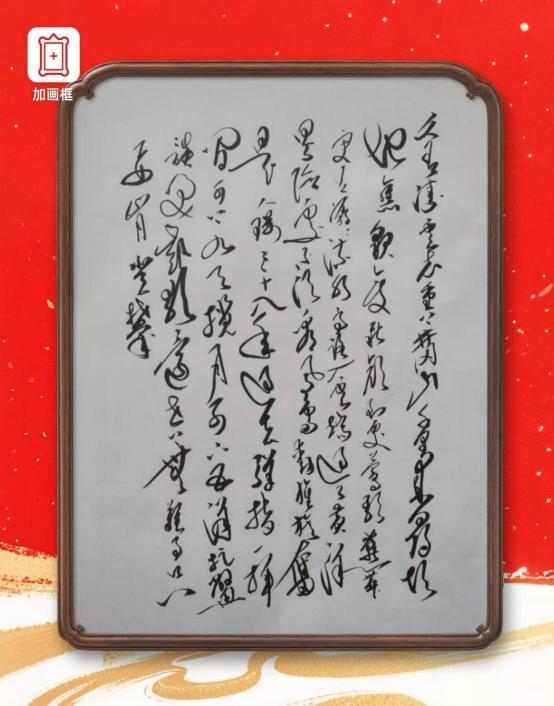 加画框
久有凌云志重上井冈山千里来寻故
地旧貌变新颜到处莺歌燕舞
更有潺潺流水高路入云端过了黄洋
界险处不须看风雷动旌旗奋
是人寰三十八年过去弹指一挥
间可上九天揽月可下五洋捉鳖
谈笑凯歌还世上无难事只
要肯登攀